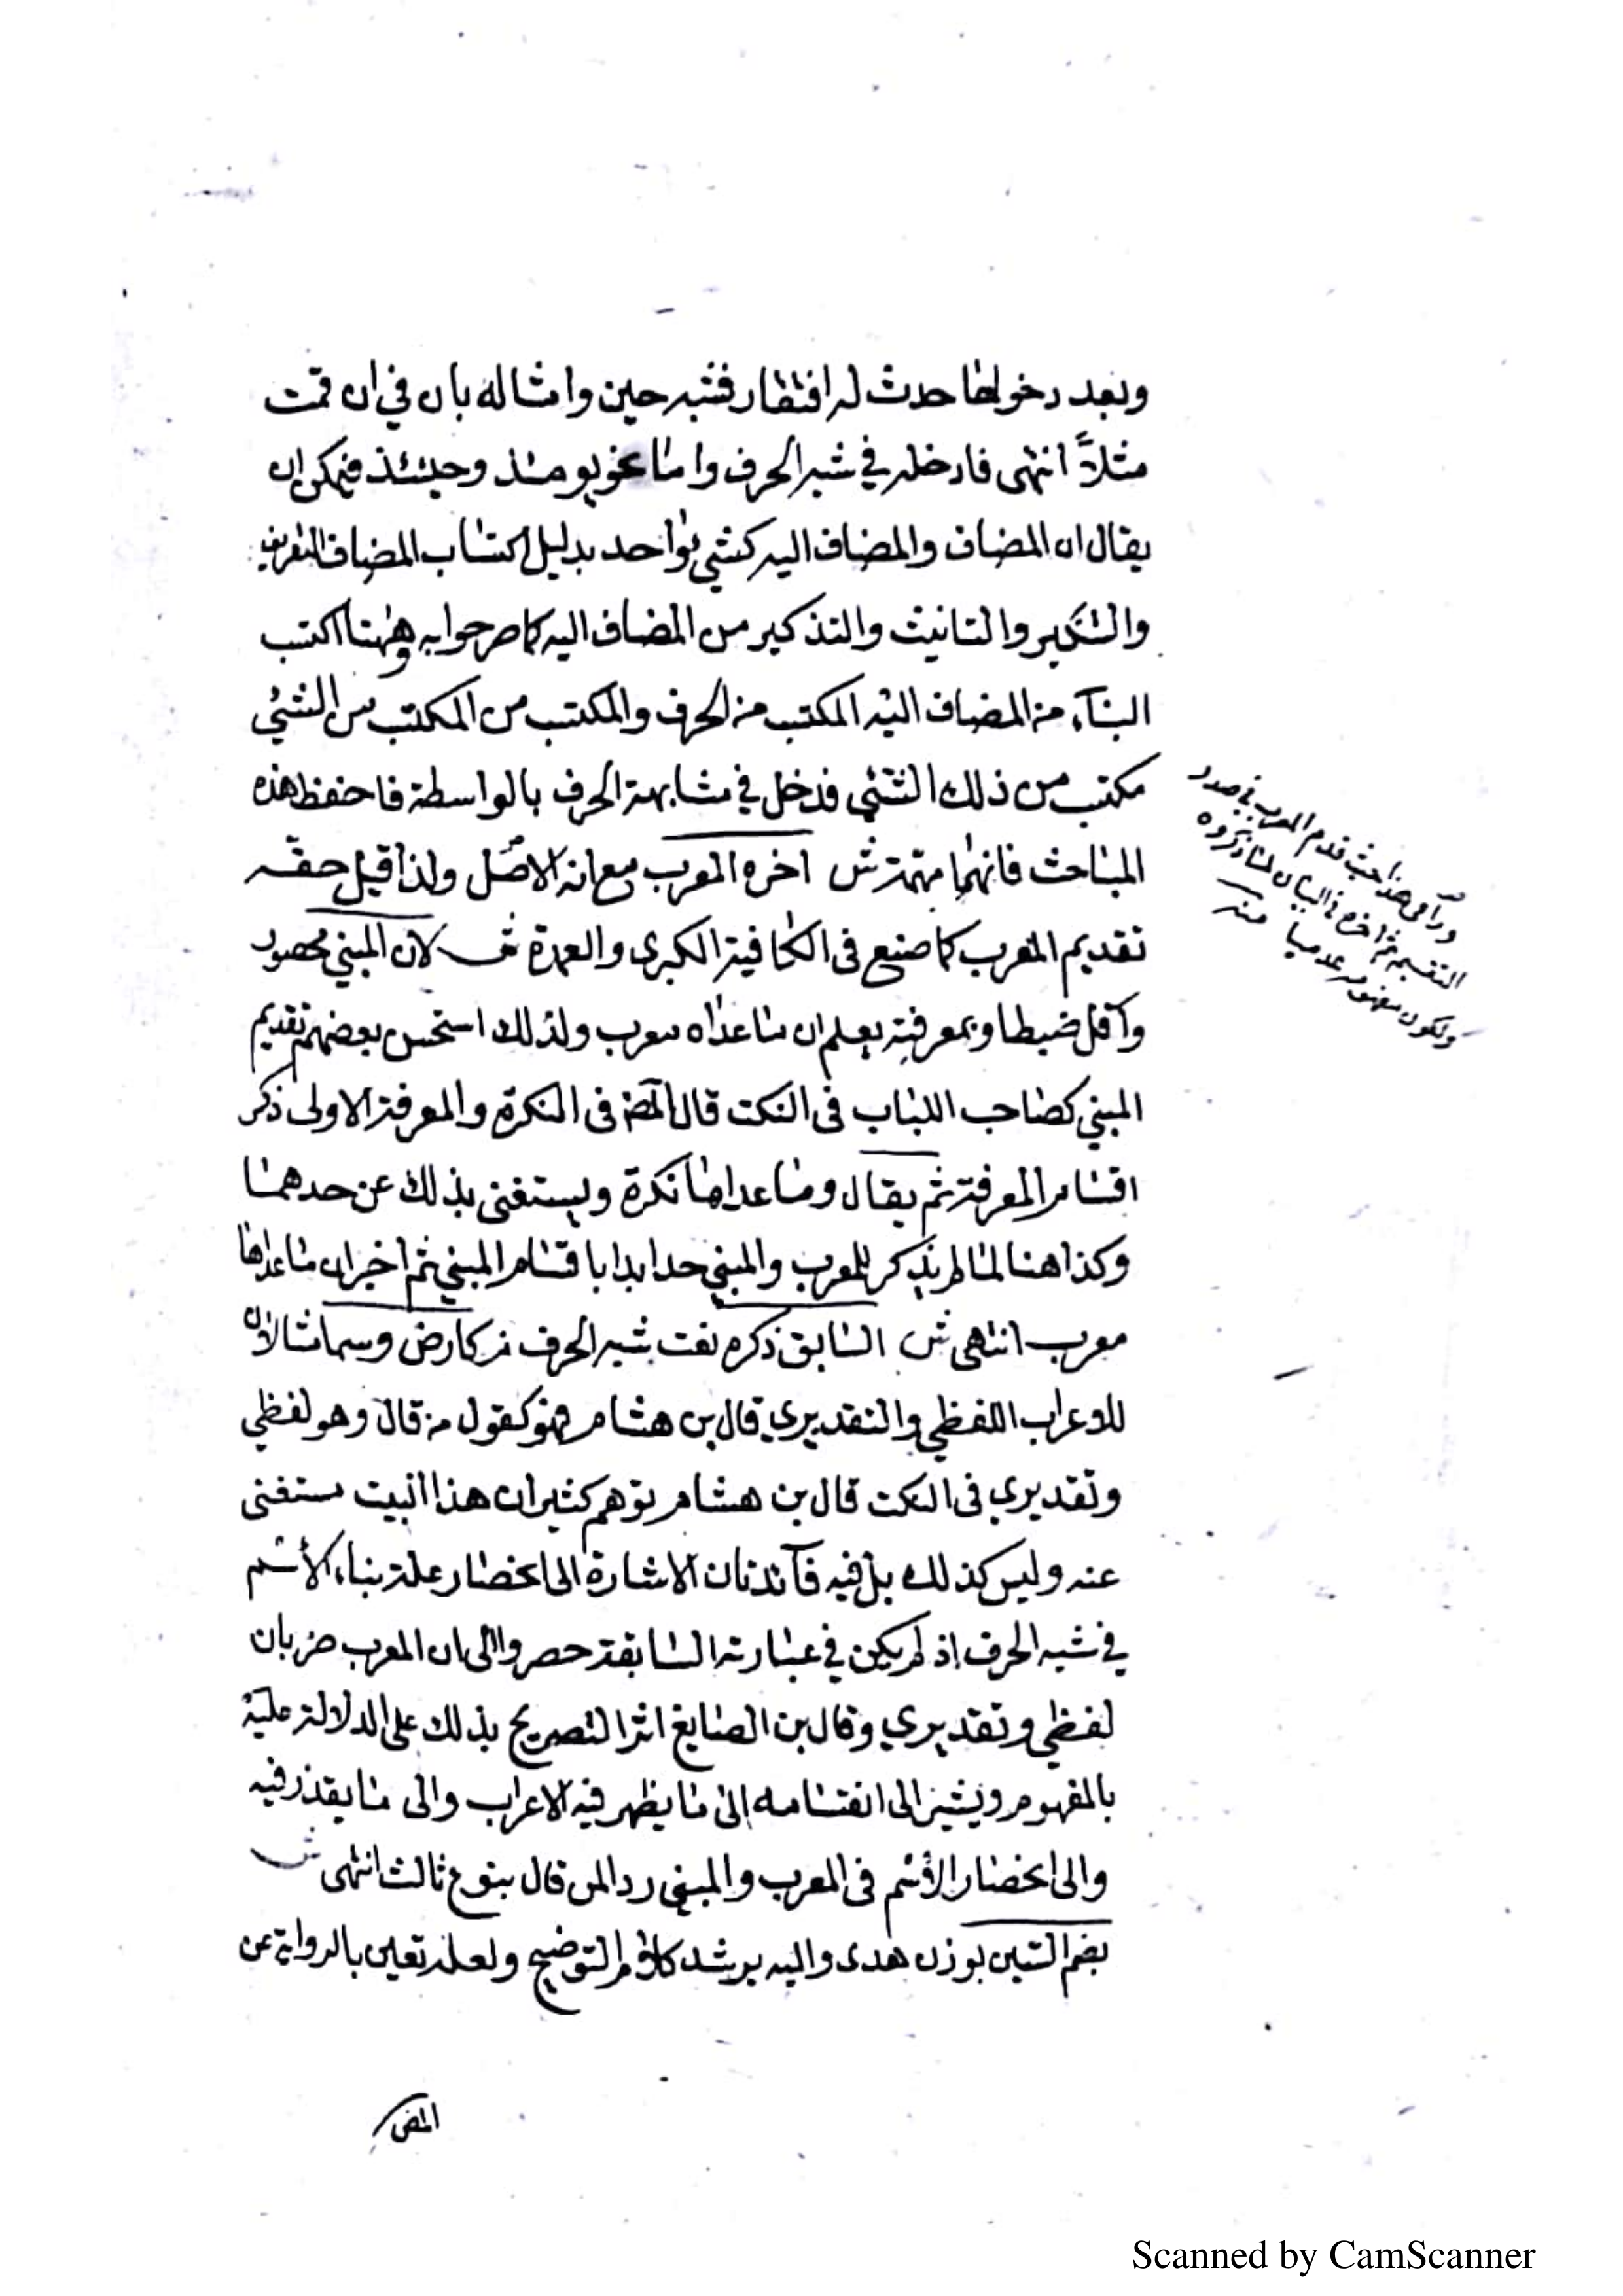 وبعد دخولها حدث له افتقار فشبه حين وامثاله بان في ان قمت
مثلاً انتهى فادخله في شبه الحرف واما نحو يومئذ وحينئذ فيمكن ان
يقال ان المضاف والمضاف اليه كشئ واحد بدليل اكتساب المضاف التعريف
والتنكير والتانيث والتذكير من المضاف اليه كما صرحوا به وههنا اكتسب
البناء من المضاف اليه المكتسب من الحرف والمكتسب من المكتسب من الشئ
مكتسب من ذلك الشئ فدخل في مشابهة الحرف بالواسطة فاحفظ هذه
المباحث فانها مهمة ش اخره المعرب مع انه الاصل ولذا قيل حقه
تقديم المعرب كما صنع فى الكافية الكبرى والعمدة ش لان المبني محصور
واقل ضبطا وبمعرفته يعلم ان ما عداه معرب ولذلك استحسن بعضهم تقديم
المبني كصاحب اللباب فى النكت قال المص فى النكرة والمعرفة الاولى ذكر
اقسام المعرفة ثم يقال وما عداها نكرة ويستغنى بذلك عن حدهما
وكذا هنا لما لم يذكر للمعرب والمبني حدا بدا باقسام المبني ثم اخبر ان ما عداها
معرب انتهى ش السابق ذكره نعت شبه الحرف من كارض وسما مثالان
للاعراب اللفظي والتقديري قال بن هشام فهو كقول من قال وهو لفظي
وتقديري فى النكت قال بن هشام توهم كثير ان هذا البيت مستغنى
عنه وليس كذلك بل فيه فائدتان الاشارة الى انحصار علة بناء الاسم
في شبه الحرف اذ لم يكن في عبارته السابقة حصر والى ان المعرب ضربان
لفظي وتقديري وقال بن الصايغ اثر التصريح بذلك على الدلالة عليه
بالمفهوم ويشير الى انقسامه الى ما يظهر فيه الاعراب والى ما يقدر فيه
والى انحصار الاسم فى المعرب والمبني ردا لمن قال بنوع ثالث انتهى ش
بضم السين بوزن هدى واليه يرشد كلام التوضيح ولعله تعين بالرواية عن
المص
قدم المعرب في صدر
التقسيم ثم اخره في البيان لما ذكروه
ولكون مفهومه عدميا منه
Scanned by CamScanner